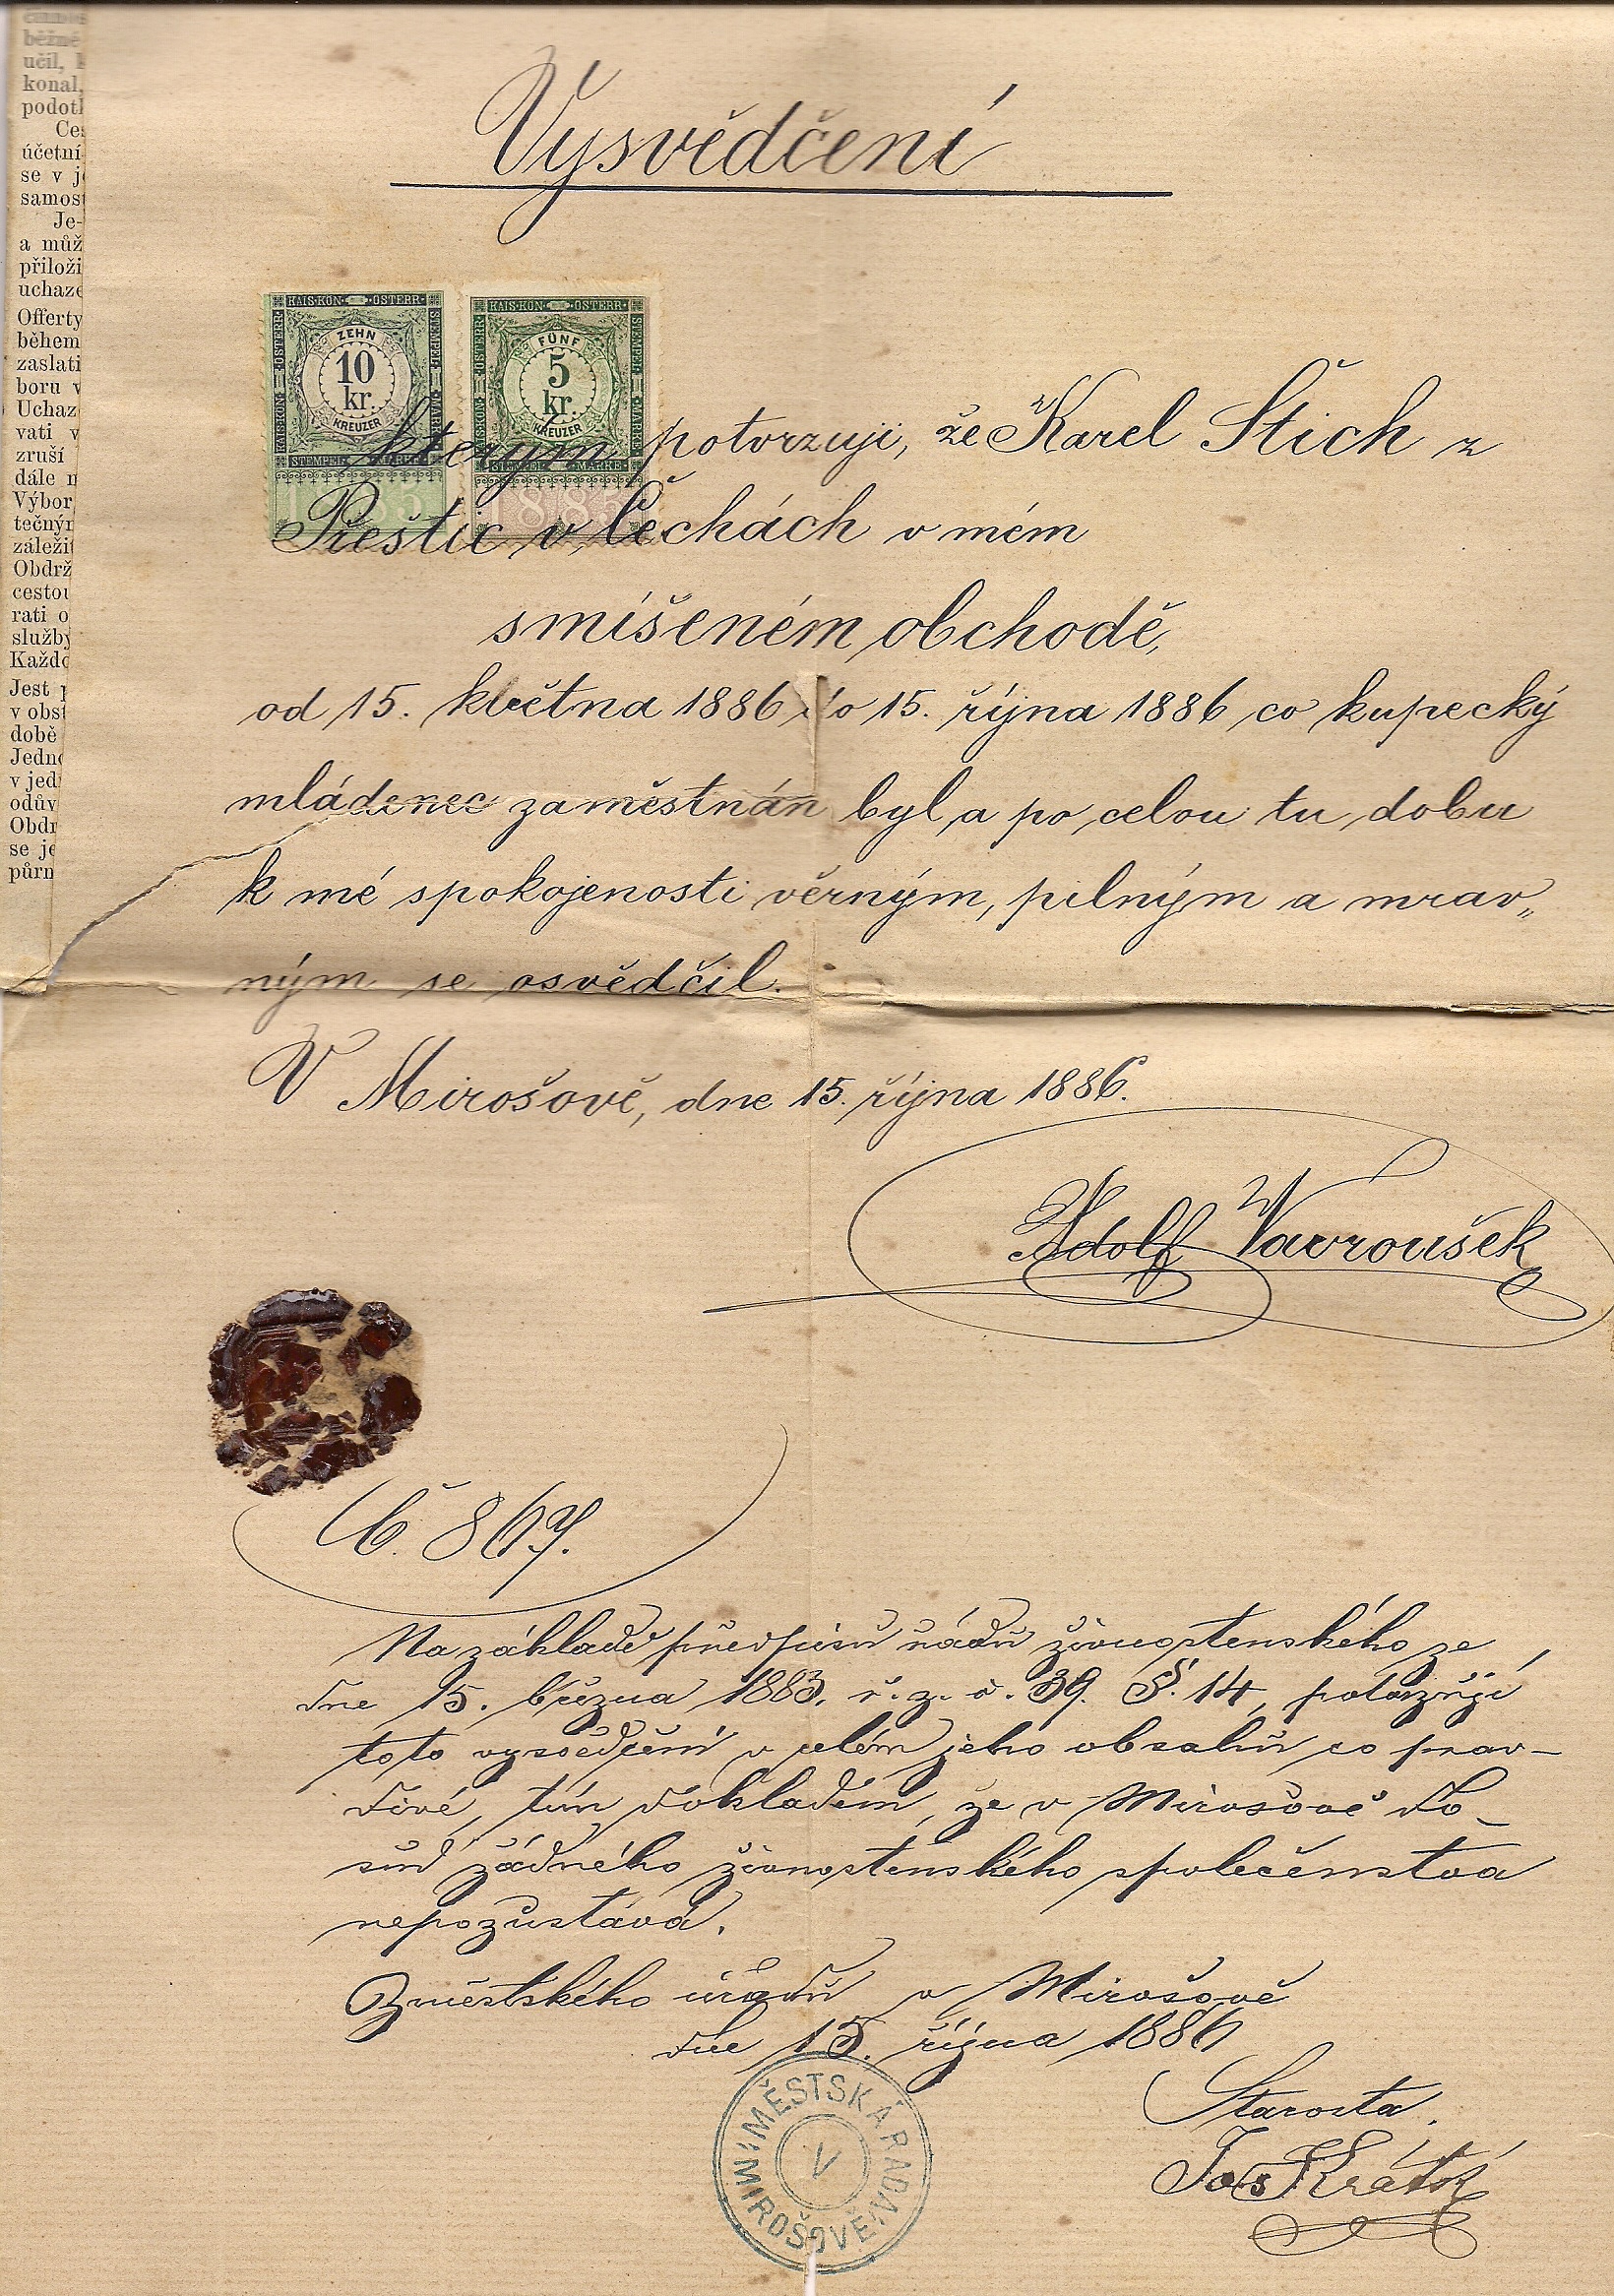 Vysvědčení
KAIS·KÖN· ÖSTERR·
STEMPEL MARKE
ZEHN
10
kr.
KREUZER
1885
KAIS·KÖN· ÖSTERR·
STEMPEL MARKE
FÜNF
5
kr.
KREUZER
1885
kterým potvrzuji, že Karel Štich z
Přeštic v Čechách v mém
smíšeném obchodě,
od 15. května 1886 do 15. října 1886 co kupecký
mládenec zaměstnán byl a po celou tu dobu
k mé spokojenosti věrným, pilným a mrav„
ným se osvědčil.
V Mirošově, dne 15. října 1886.
Adolf Vavroušek
Č. 867.
Na základě předpisů řádu živnostenského ze
dne 15. března 1883. ř. z. č. 39. §. 14, potvrzuji
toto vysvědčení v celém jeho obsahu co prav-
divé, tím dokladem, že v Mirošově do-
sud žádného živnostenského společenstva
nepozůstává.
Z městského úřadu v Mirošově
dne 15. října 1886
Starosta.
Jos Krátký
MĚSTSKÁ RADA V MIROŠOVĚ
běžné
učil,
konal,
podotk
účetní
se v j
samos
Je-
a můž
přiloži
uchaze
Offerty
během
zaslati
boru v
Uchaz
vati v
zruší
dále n
Výbor
tečným
záleži
Obdrž
cestou
rati o
služby
Každo
Jest p
v obst
době
Jedn
v jed
odův
Obdr
se je
půrn